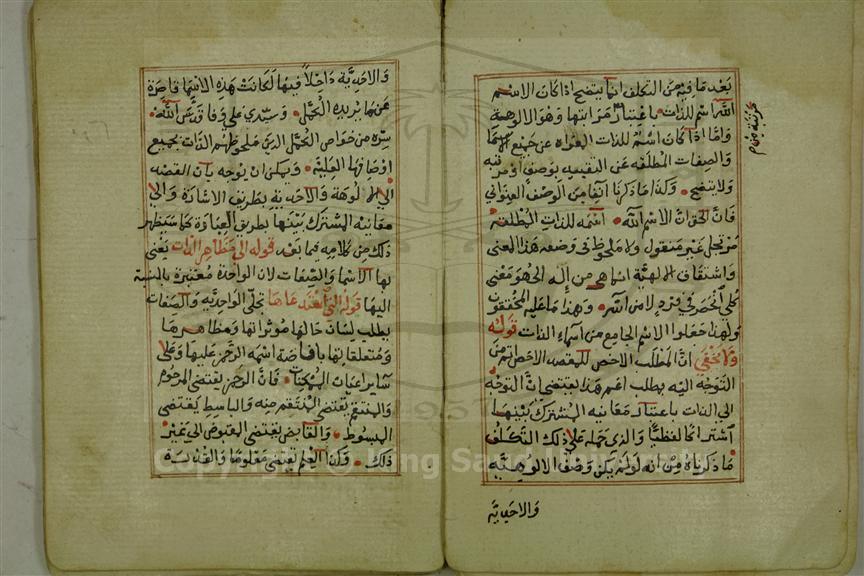 بعد ما فيه من التكلف انما يتضح اذا كان الاسم
الله اسم للذات باعتبار مرابتها وهو الالوهية
واما اذا كان اسم للذات المعراه عن جميع الاسما
والصفات المطلقه عن التقييد بوصف او مرتبه
ولا يتضح وكذا ما ذكرنا انفا من الوصف العنواني
فان الحق ان الاسم الله اسمه للذات المطلقه
مرتجل غير منقول ولا ملحوظ في وضعه هذا المعنى
واشتقاق الالهية انما هي من اله الذي هو معنى
كلي انحصر في فرد لا من الله وهذا ما عليه المحققون
ولهذا جعلوا الاسم الجامع من اسماء الذات قوله
ولا يخفى ان المطلب الاخص للمقصد الاخص اتم من
التوجه اليه بطلب اعم هذا يقتضي ان التوجه
الى الذات باعتبار معانيه المشترك بينها
اشتراكا لفظيا والذي حمله على ذلك التكلف
ما ذكرناه من انه لو لم يكن وصف الالوهية
والاحدية
والاحدية داخلا فيها لكانت هذه الاسما قاصرة
عن ما يريده الكمل وسيدي علي وفا قدس الله
سره من خواص الكمل الذين ملحوظهم الذات بجميع
اوصافها العلية ويمكن ان يوجه بان القصد
الى الالوهة والاحدية بطريق الاشارة والى
معانيه المشترك بينها بطريق العبارة كما سيظهر
ذلك من كلامه فيما بعد قوله الى مظاهر الذات يعني
بها الاسما والصفات لان الواحدة معتبرة بالنسبة
اليها قوله التي استعدادها تجلى الواحدية والصفات
يطلب لسان حالها موثراتها ومظاهرها
ومتعلقاتها بافاضة اسمه الرحمن عليها وعلى
ساير اعيان الممكنات فان الرحمن يقتضي المرحوم
والمنتقم يقتضي المنتقم منه والباسط يقتضي
المبسوط والقابض يقتضي المقبوض الى غير
ذلك وكذا العلم يقتضي معلوما والقدرة